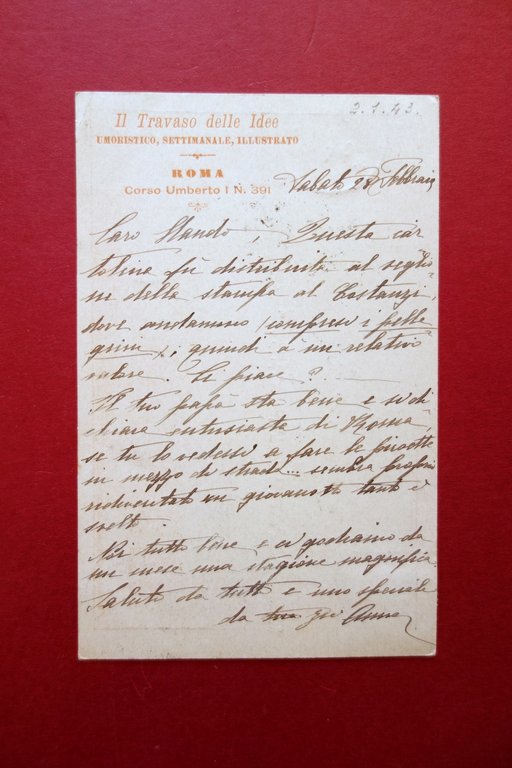 Il Travaso delle Idee
UMORISTICO, SETTIMANALE, ILLUSTRATO
ROMA
Corso Umberto I N. 391
2.1.43.
Sabato 28 Febbraio
Caro Nando, Questa car
tolina fù distribuita al veglio
ne della stampa al Costanzi,
dove andammo (compresi i pelle
grini), quindi à un relativo
valore. Ti piace?
Il tuo papà sta bene e si di
chiara entusiasta di Roma,
se tu lo vedessi a fare le
in mezzo di strada... sembra proprio
ridiventato un giovanotto tanto è
svelto.
Noi tutti bene e ci godiamo da
un mese una stagione magnifica.
Saluti da tutti e uno speciale
da tua zia Anna